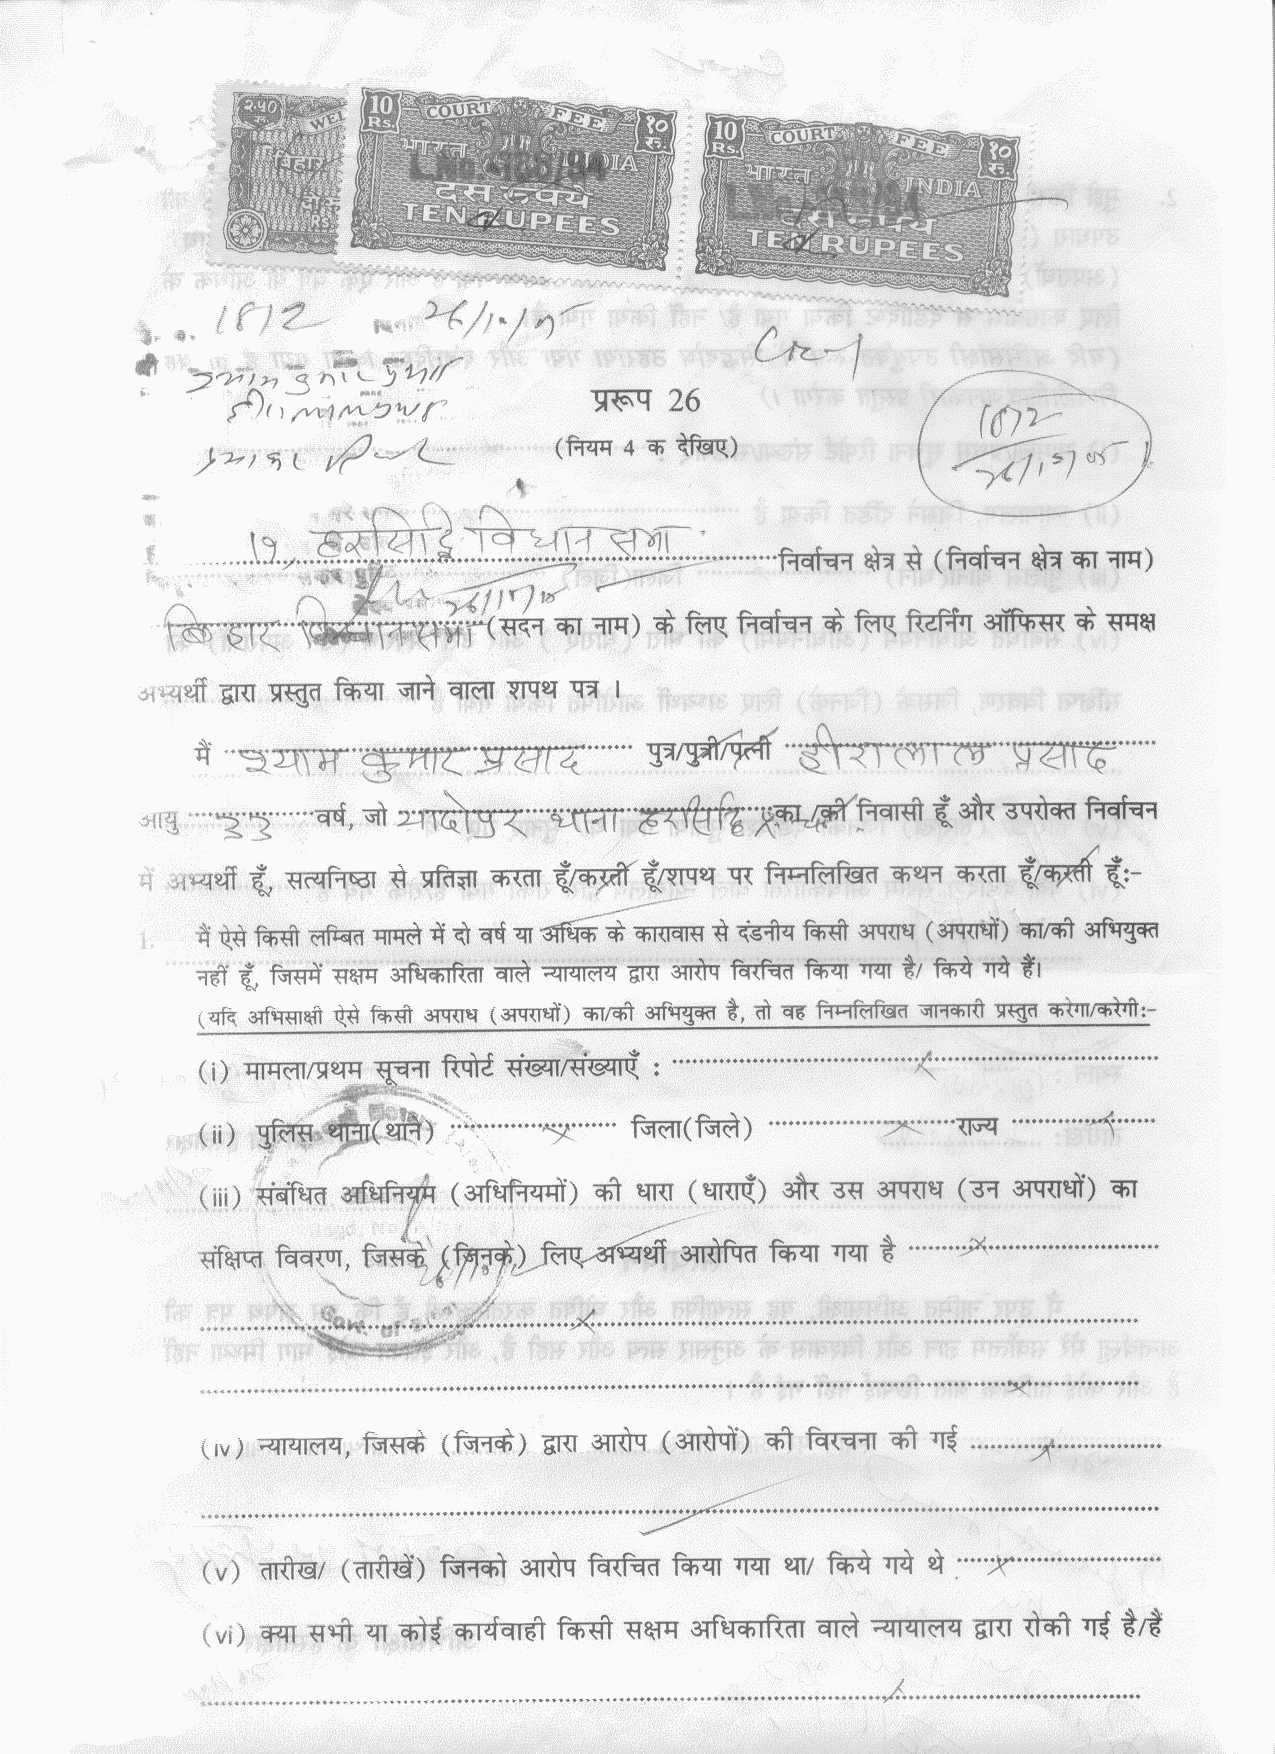 २.५० रु.
WEL
बिहार
10 Rs. COURT FEE १० रु.
भारत INDIA
L.No.-188/94
दस रुपये
TEN RUPEES
10 Rs. COURT FEE १० रु.
भारत INDIA
दस रुपये
TEN RUPEES
1812 26/10/05
प्ररूप 26
1812
26/10/05
(नियम 4 क देखिए)
19, हरसिद्धि विधान सभा निर्वाचन क्षेत्र से (निर्वाचन क्षेत्र का नाम)
बिहार विधान सभा (सदन का नाम) के लिए निर्वाचन के लिए रिटर्निंग ऑफिसर के समक्ष
अभ्यर्थी द्वारा प्रस्तुत किया जाने वाला शपथ पत्र ।
मैं श्याम कुमार प्रसाद पुत्र/पुत्री/पत्नी हीरालाल प्रसाद
आयु ३३ वर्ष, जो यादोपुर थाना हरसिद्धि का /की निवासी हूँ और उपरोक्त निर्वाचन
में अभ्यर्थी हूँ, सत्यनिष्ठा से प्रतिज्ञा करता हूँ/करती हूँ/शपथ पर निम्नलिखित कथन करता हूँ/करती हूँ:-
1. मैं ऐसे किसी लम्बित मामले में दो वर्ष या अधिक के कारावास से दंडनीय किसी अपराध (अपराधों) का/की अभियुक्त
नहीं हूँ, जिसमें सक्षम अधिकारिता वाले न्यायालय द्वारा आरोप विरचित किया गया है/ किये गये हैं।
(यदि अभिसाक्षी ऐसे किसी अपराध (अपराधों) का/की अभियुक्त है, तो वह निम्नलिखित जानकारी प्रस्तुत करेगा/करेगी:-
(i) मामला/प्रथम सूचना रिपोर्ट संख्या/संख्याएँ : x
(ii) पुलिस थाना(थाने) x जिला(जिले) x राज्य x
(iii) संबंधित अधिनियम (अधिनियमों) की धारा (धाराएँ) और उस अपराध (उन अपराधों) का
संक्षिप्त विवरण, जिसके (जिनके) लिए अभ्यर्थी आरोपित किया गया है x
x
x
(iv) न्यायालय, जिसके (जिनके) द्वारा आरोप (आरोपों) की विरचना की गई x
(v) तारीख/ (तारीखें) जिनको आरोप विरचित किया गया था/ किये गये थे x
(vi) क्या सभी या कोई कार्यवाही किसी सक्षम अधिकारिता वाले न्यायालय द्वारा रोकी गई है/हैं
x